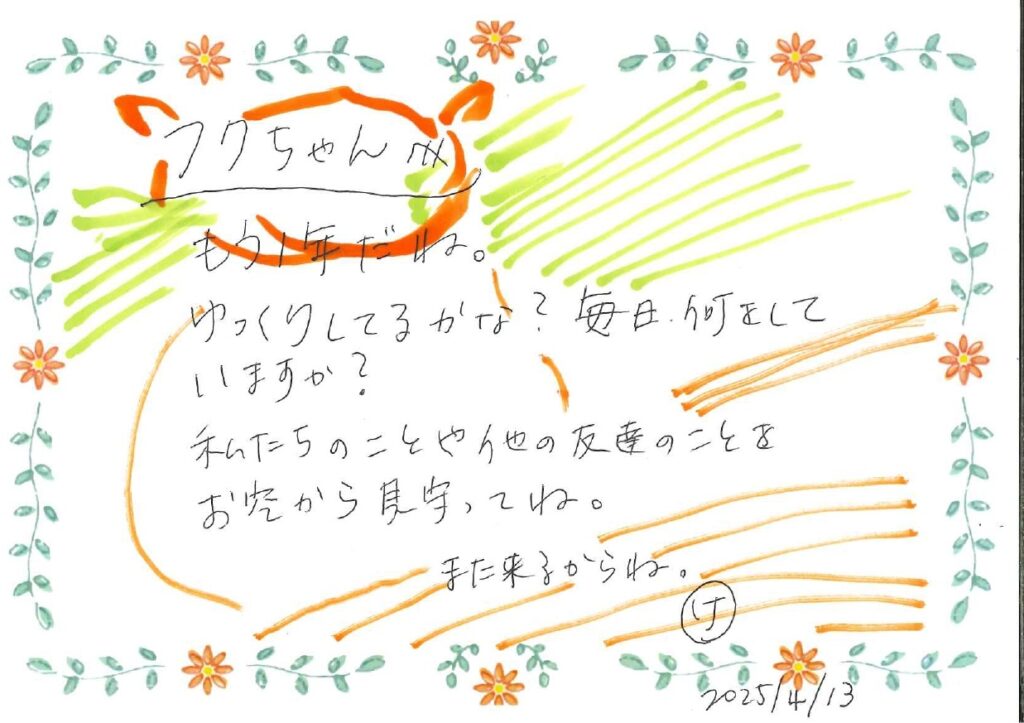 フクちゃんへ
もう1年だね。
ゆっくりしてるかな？毎日、何をして
いますか？
私たちのことや他の友達のことを
お空から見守ってね。
また来るからね。
け
2025/4/13